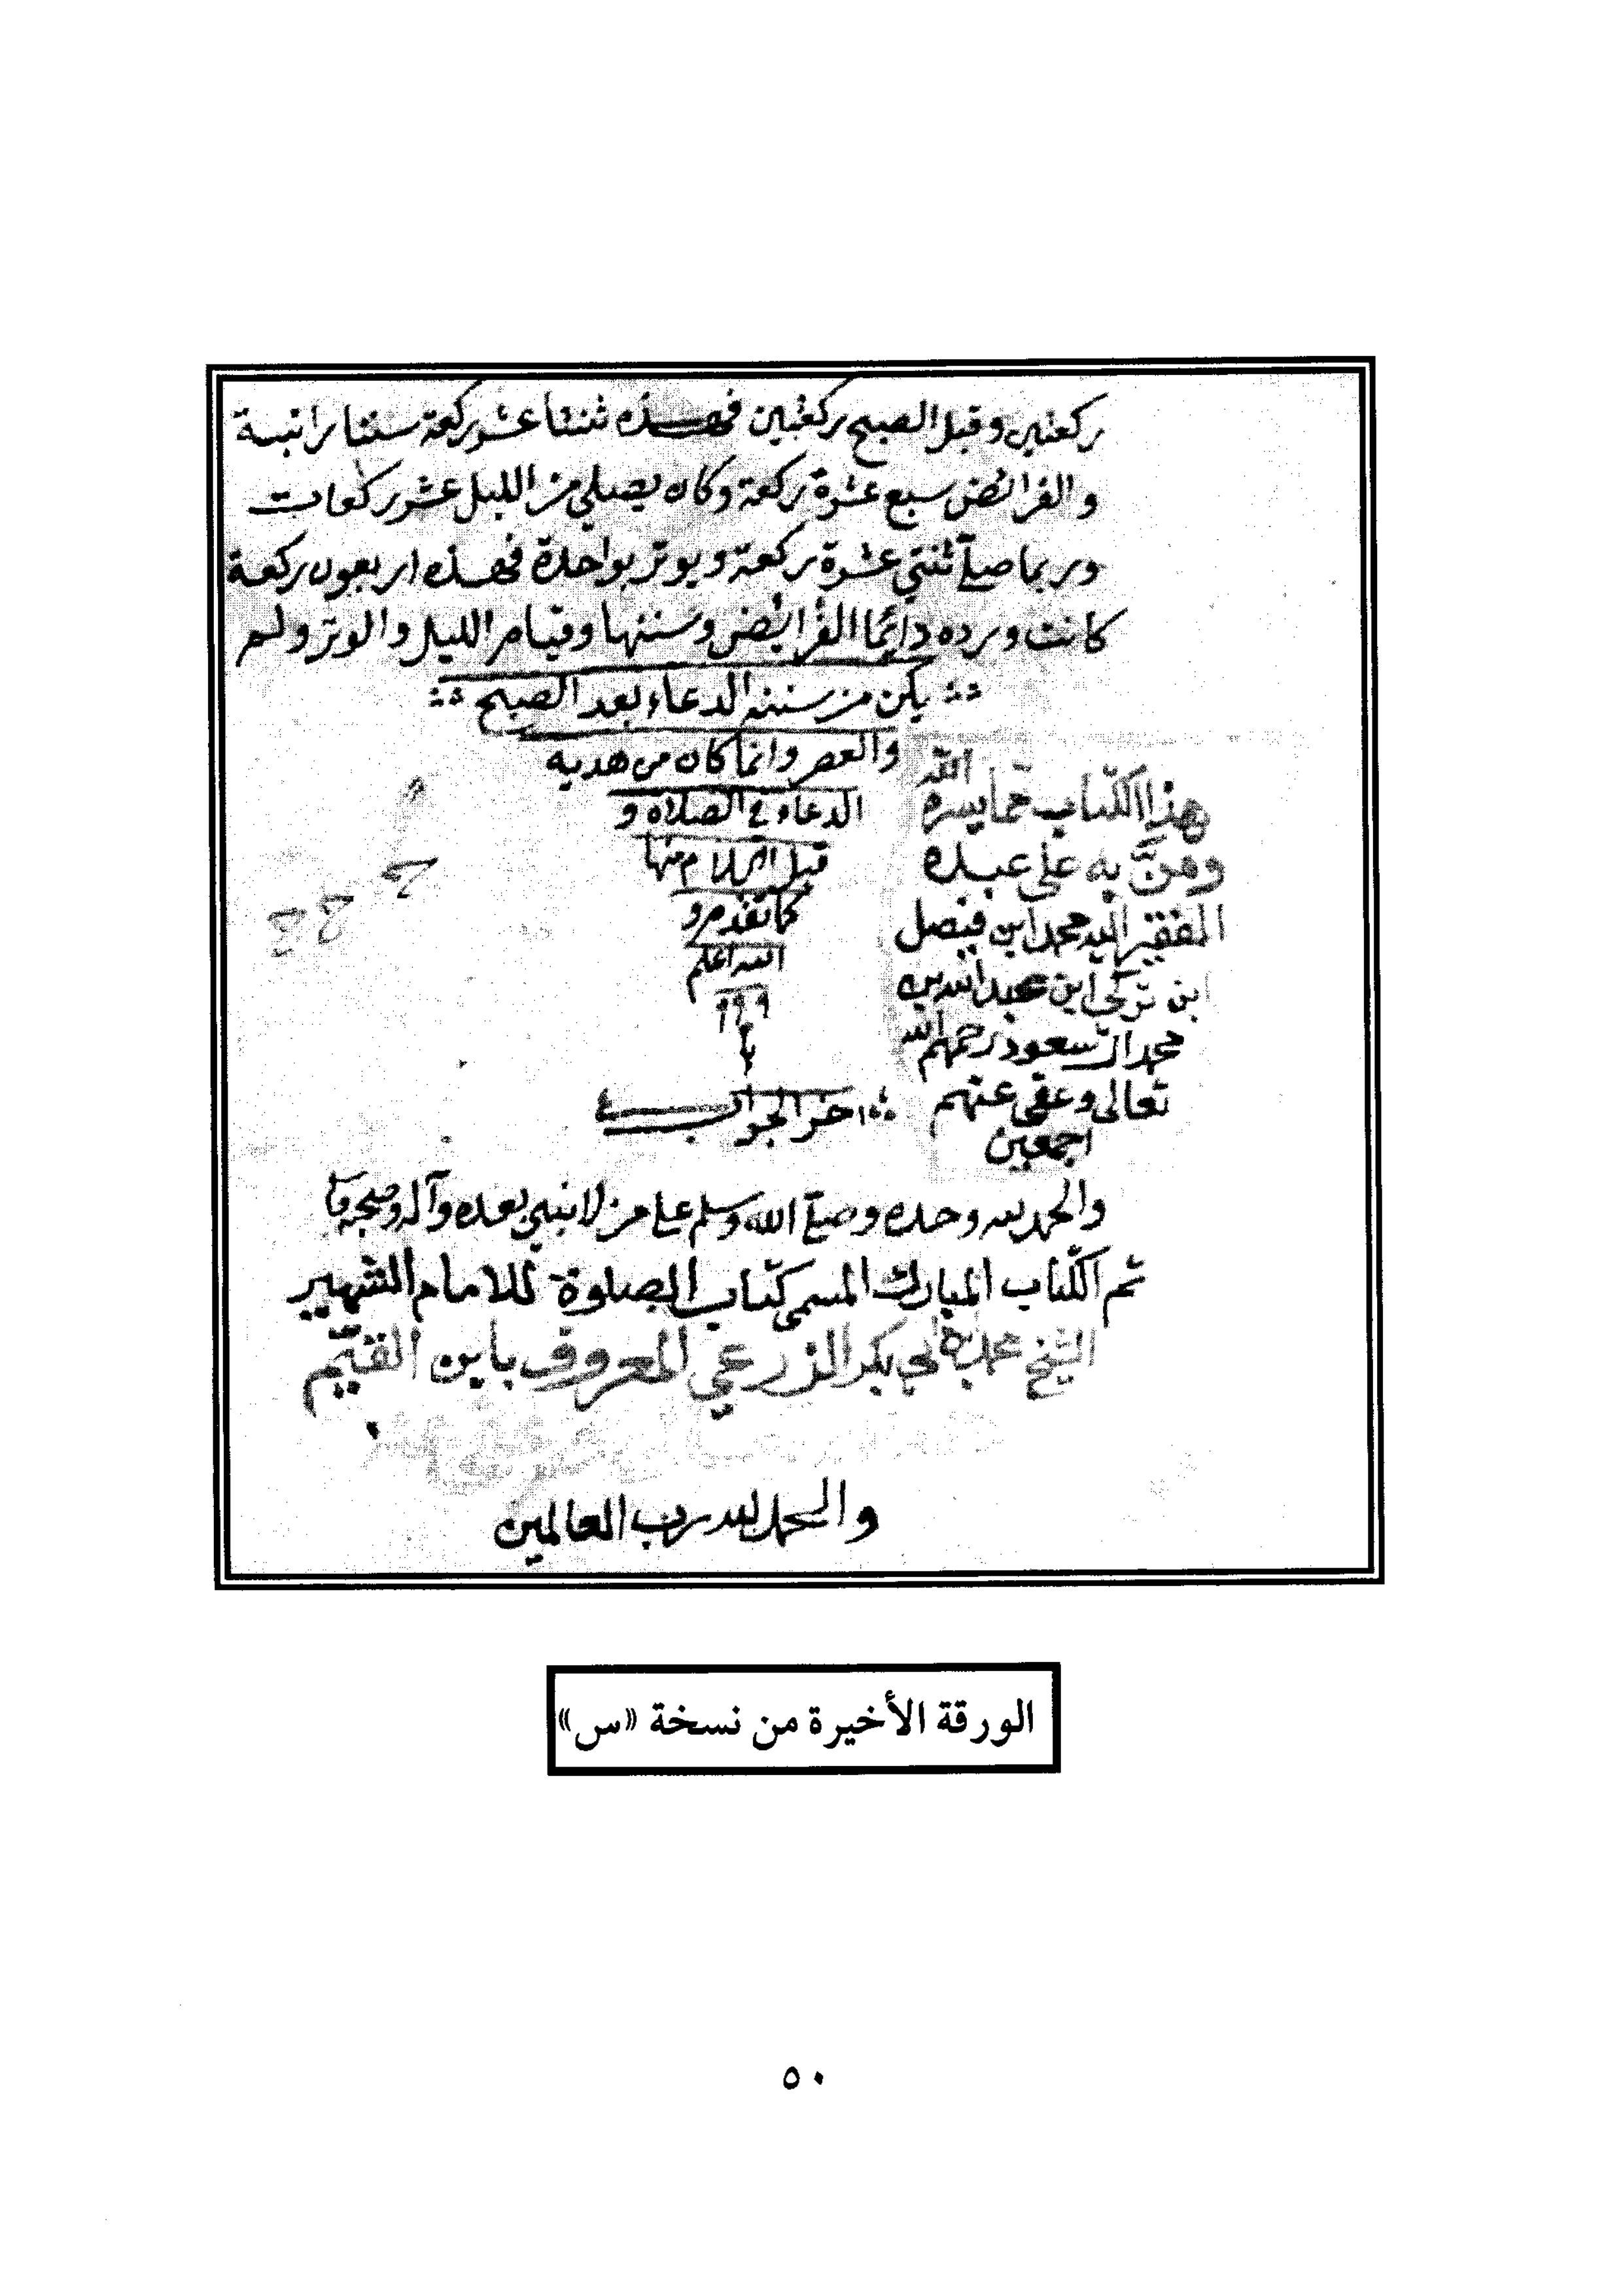 ركعتين وقبل الصبح ركعتين فهذه ثنتا عشر ركعة سننا راتبة
والفرائض سبع عشرة ركعة وكان يصلي من الليل عشر ركعات
وربما صلى ثنتي عشرة ركعة ويوتر بواحدة فهذه اربعون ركعة
كانت ورده دائما الفرائض وسننها وقيام الليل والوتر ولم
يكن من سنته الدعاء بعد الصبح
والعصر وانما كان من هديه
الدعاء في الصلاة و
قبل السلام منها
كما تقدم و
الله اعلم
اخر الجواب
هذا الكتاب مما يسره الله
ومنّ به على عبده
الفقير اليه محمد ابن فيصل
ابن تركي ابن عبد الله بن
محمد ال سعود رحمهم الله
تعالى وعفى عنهم
اجمعين
والحمد لله وحده وصلى الله وسلم على من لا نبي بعده وآله وصحبه
تم الكتاب المبارك المسمى كتاب الصلوة للامام الشهير
الشيخ محمد بن ابي بكر الزرعي المعروف بابن القيّم
والحمد لله رب العالمين
الورقة الأخيرة من نسخة «س»
٥٠